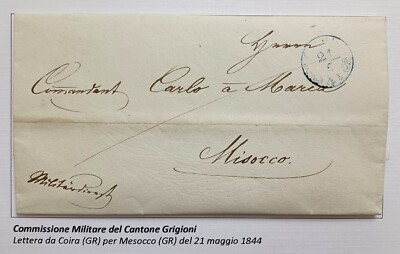 Herrn
21
Comandant Carlo à Marca
Misocco.
Militärdienst
Commissione Militare del Cantone Grigioni
Lettera da Coira (GR) per Mesocco (GR) del 21 maggio 1844